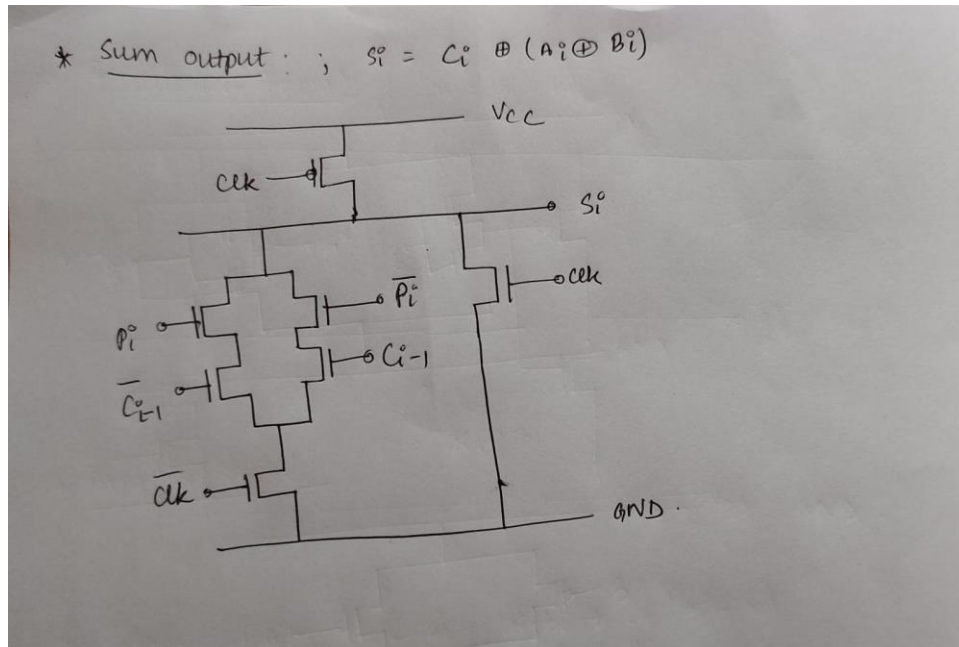 * Sum output : ; Si = Ci ⊕ (Ai ⊕ Bi)
Vcc
Clk
Si
P̅i
Clk
Pi
Ci-1
C̅i-1
C̅l̅k̅
GND.